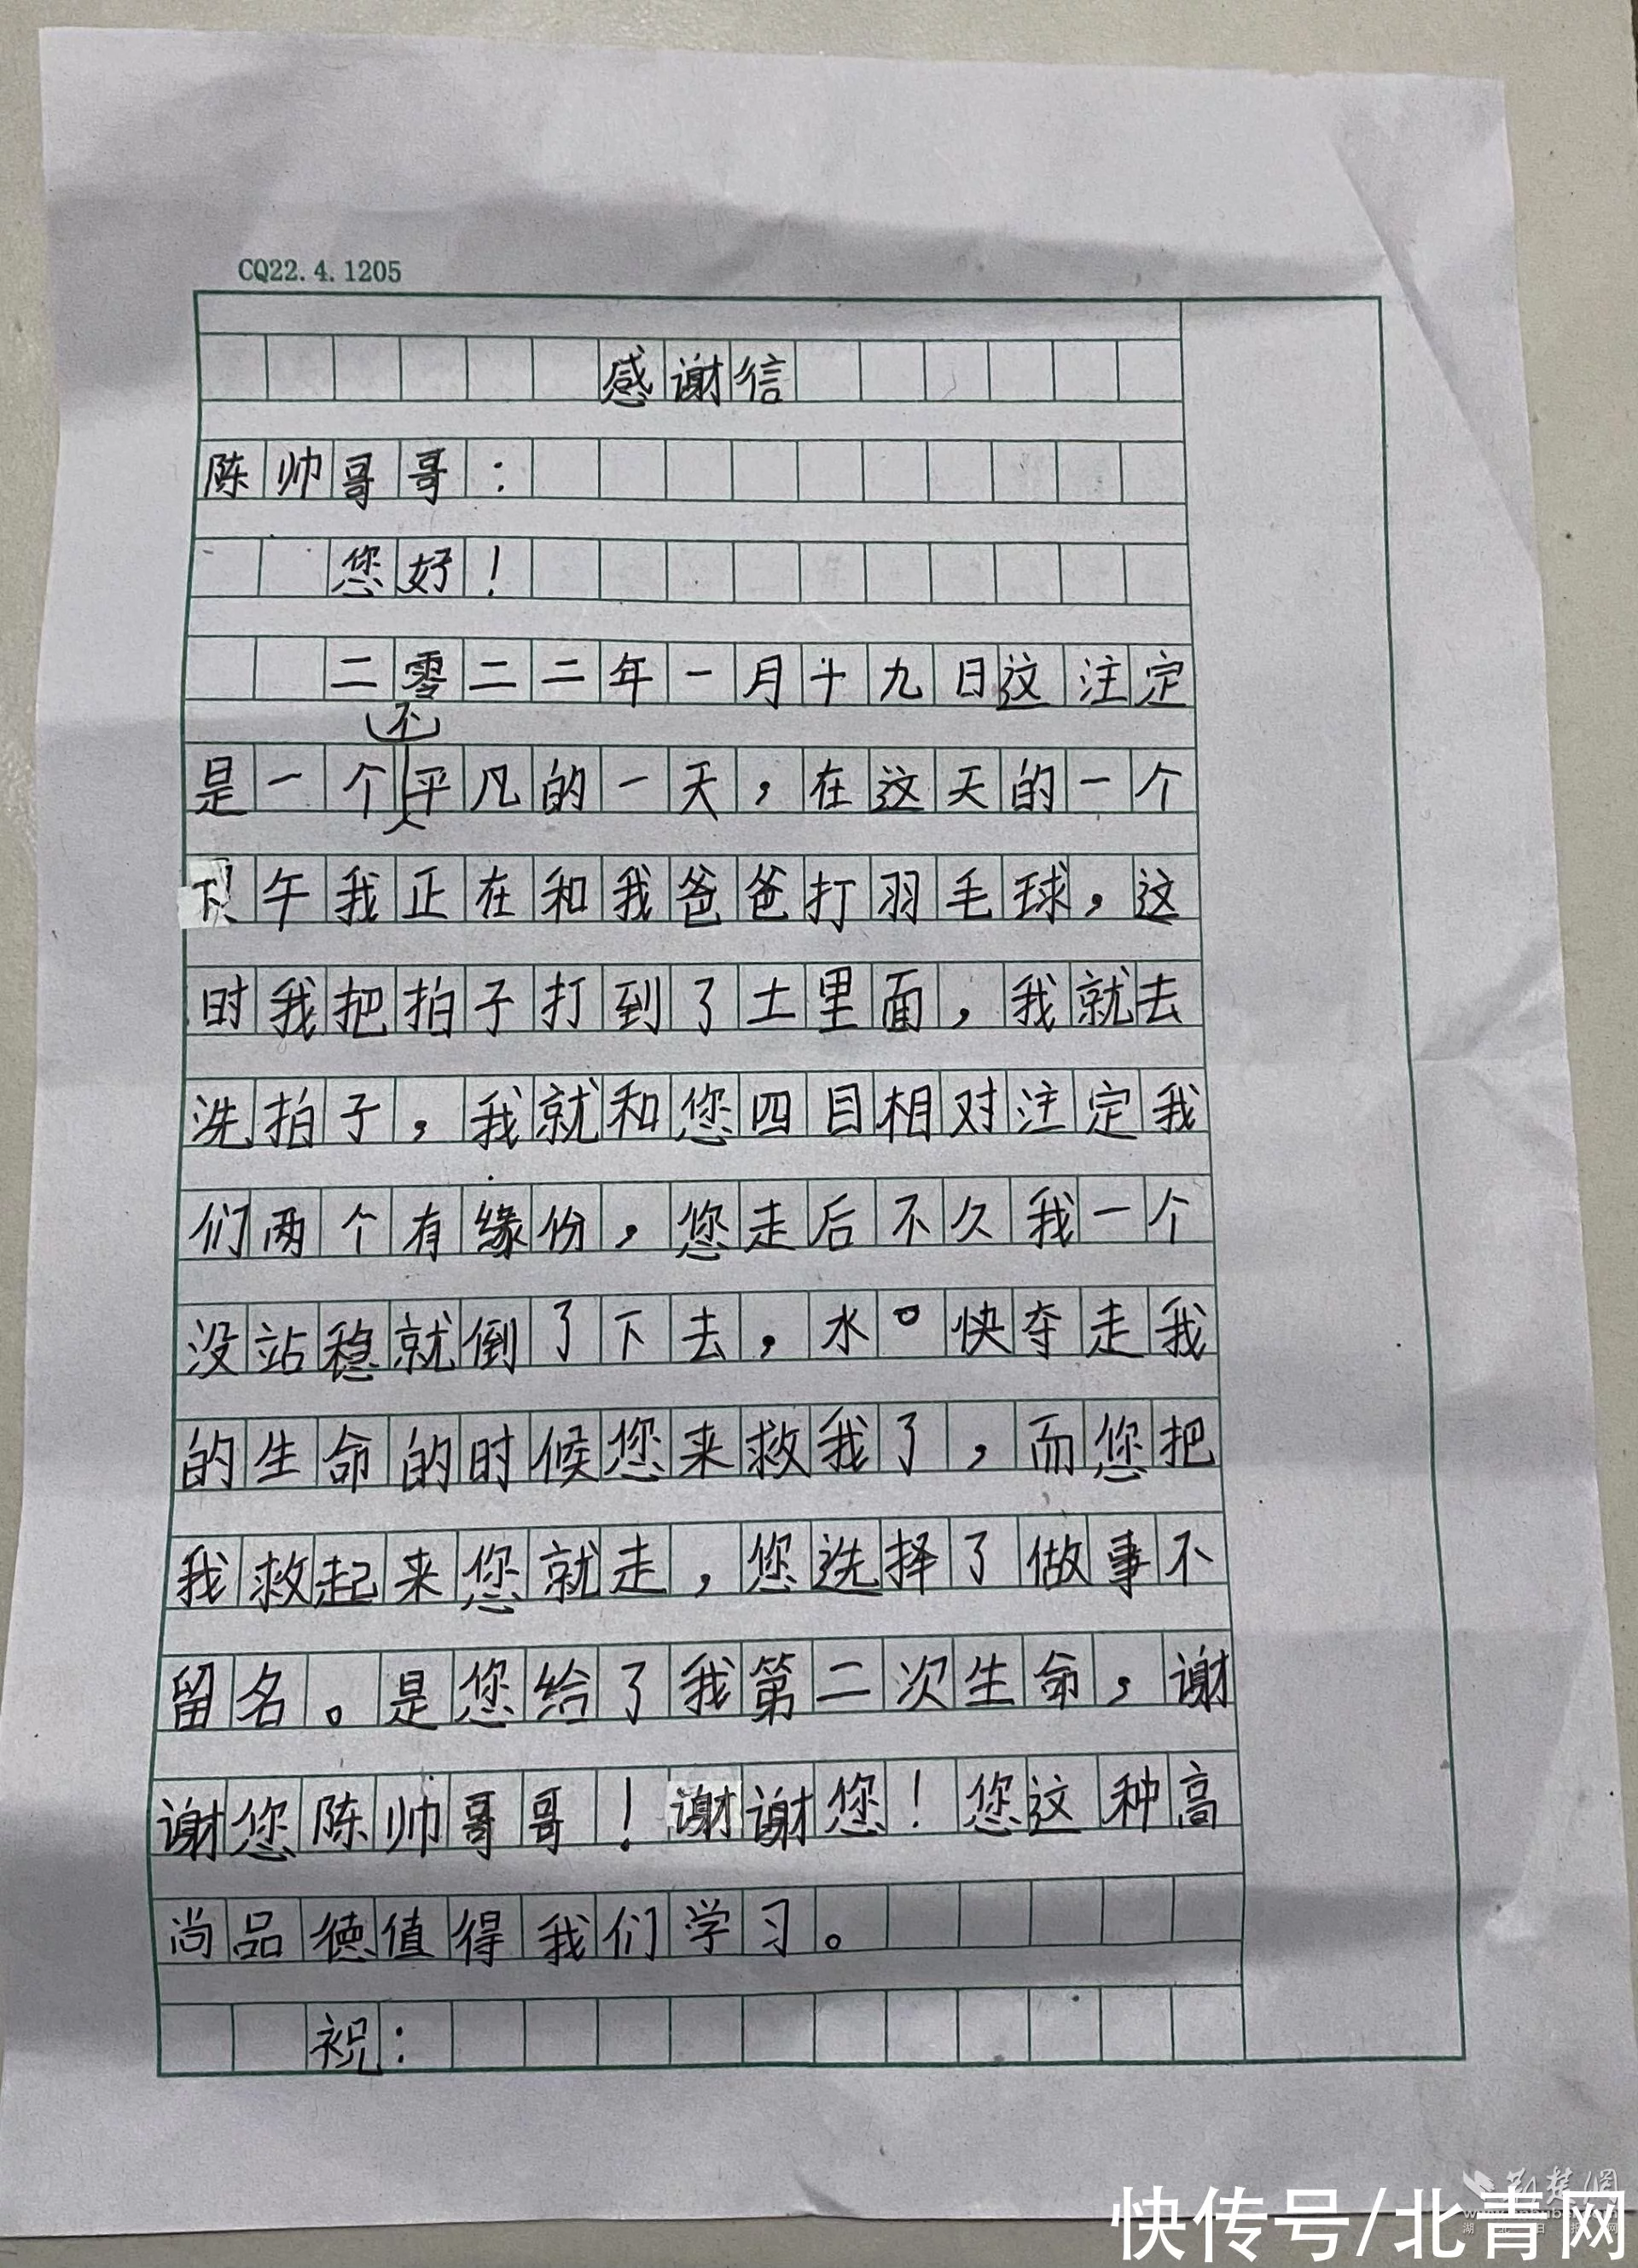 CQ22.4.1205
感谢信
陈帅哥哥：
您好！
二零二二年一月十九日这注定
是一个不平凡的一天，在这天的一个
下午我正在和我爸爸打羽毛球，这
时我把拍子打到了土里面，我就去
洗拍子，我就和您四目相对注定我
们两个有缘份，您走后不久我一个
没站稳就倒了下去，水快夺走我
的生命的时候您来救我了，而您把
我救起来您就走，您选择了做事不
留名。是您给了我第二次生命，谢
谢您陈帅哥哥！谢谢您！您这种高
尚品德值得我们学习。
祝：
荆楚网
快传号/北青网